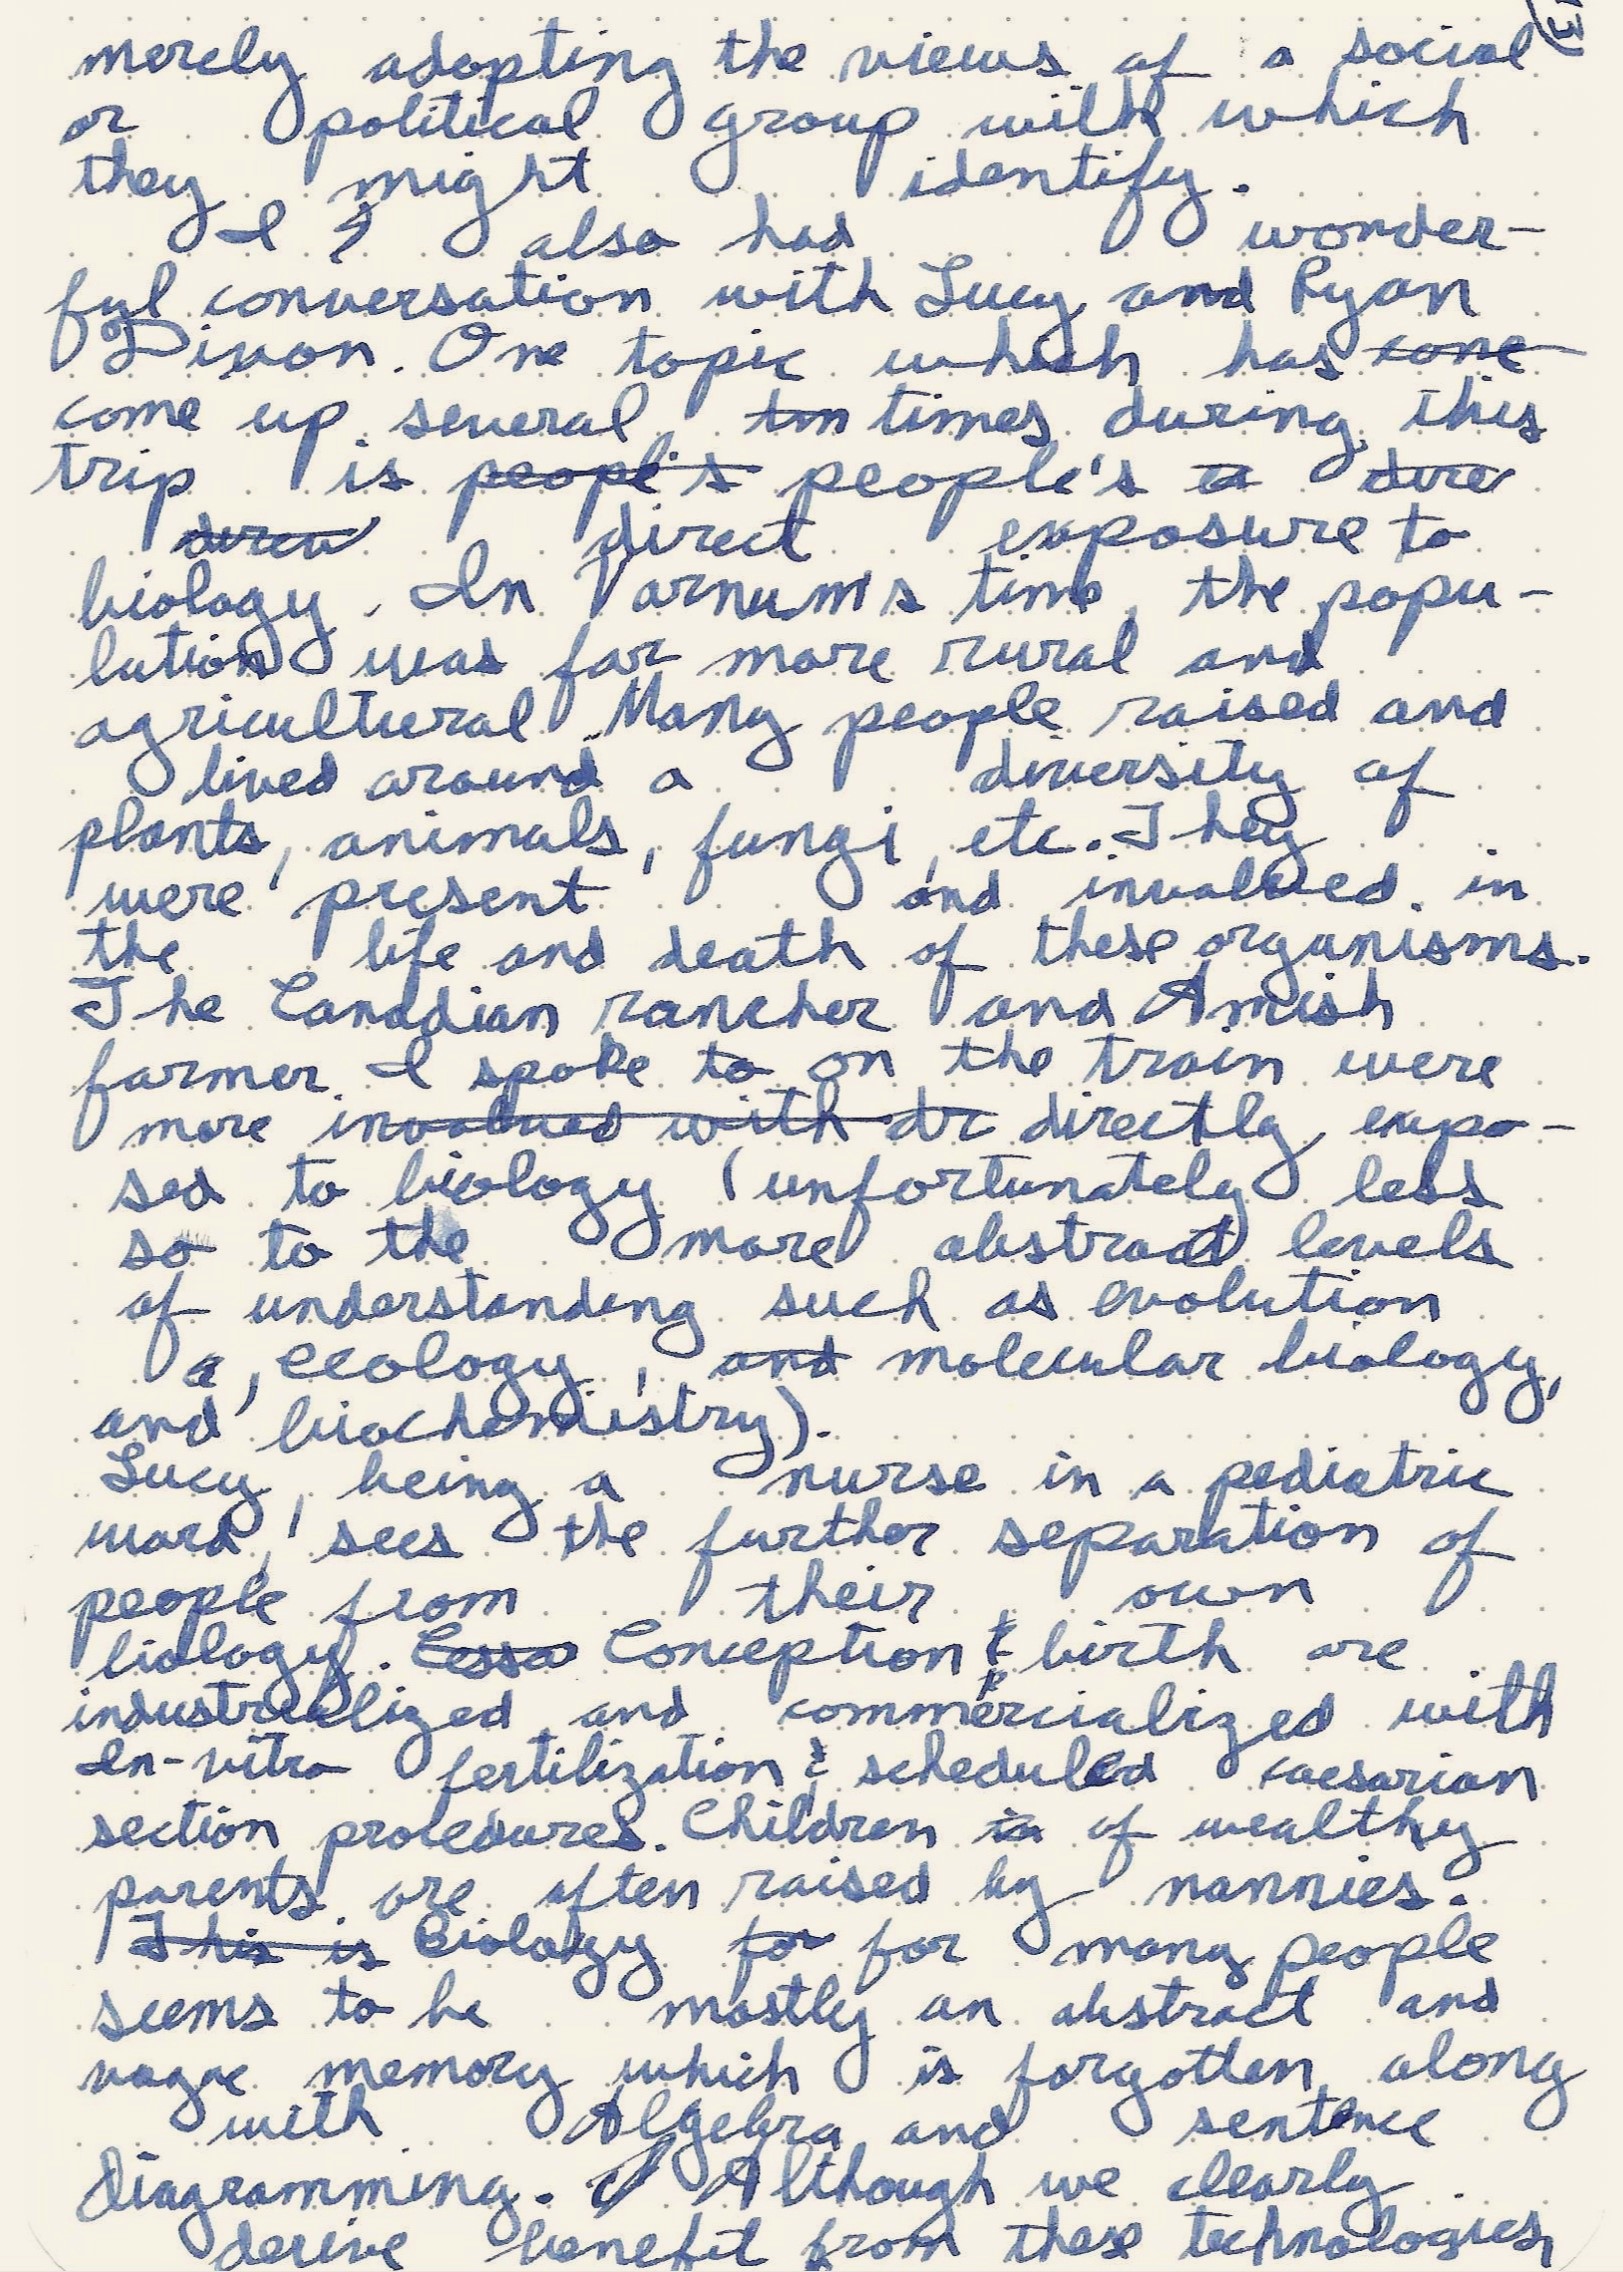 merely adopting the views of a social
or political group with which
they might identify.
I & also had wonder-
ful conversation with Lucy and Ryan
Dixon. One topic which has come
come up several tim times during this
trip is people's people's a dire
direct direct exposure to
biology. In Varnum's time, the popu-
lation was far more rural and
agricultural. Many people raised and
lived around a diversity of
plants, animals, fungi, etc. They
were present and involved in
the life and death of these organisms.
The Canadian rancher and Amish
farmer I spoke to on the train were
more involved with dr directly expo-
sed to biology (unfortunately less
so to the more abstract levels
of understanding such as evolution
a, ecology, and molecular biology,
and biochemistry).
Lucy, being a nurse in a pediatric
ward, sees the further separation of
people from their own
biology. Conception & birth are
industrialized and commercialized with
In-vitro fertilization & scheduled caesarian
section procedures. Children in of wealthy
parents are often raised by nannies.
This is Biology for for many people
seems to be mostly an abstract and
vague memory which is forgotten along
with Algebra and sentence
diagramming. Although we clearly
derive benefit from these technologies,